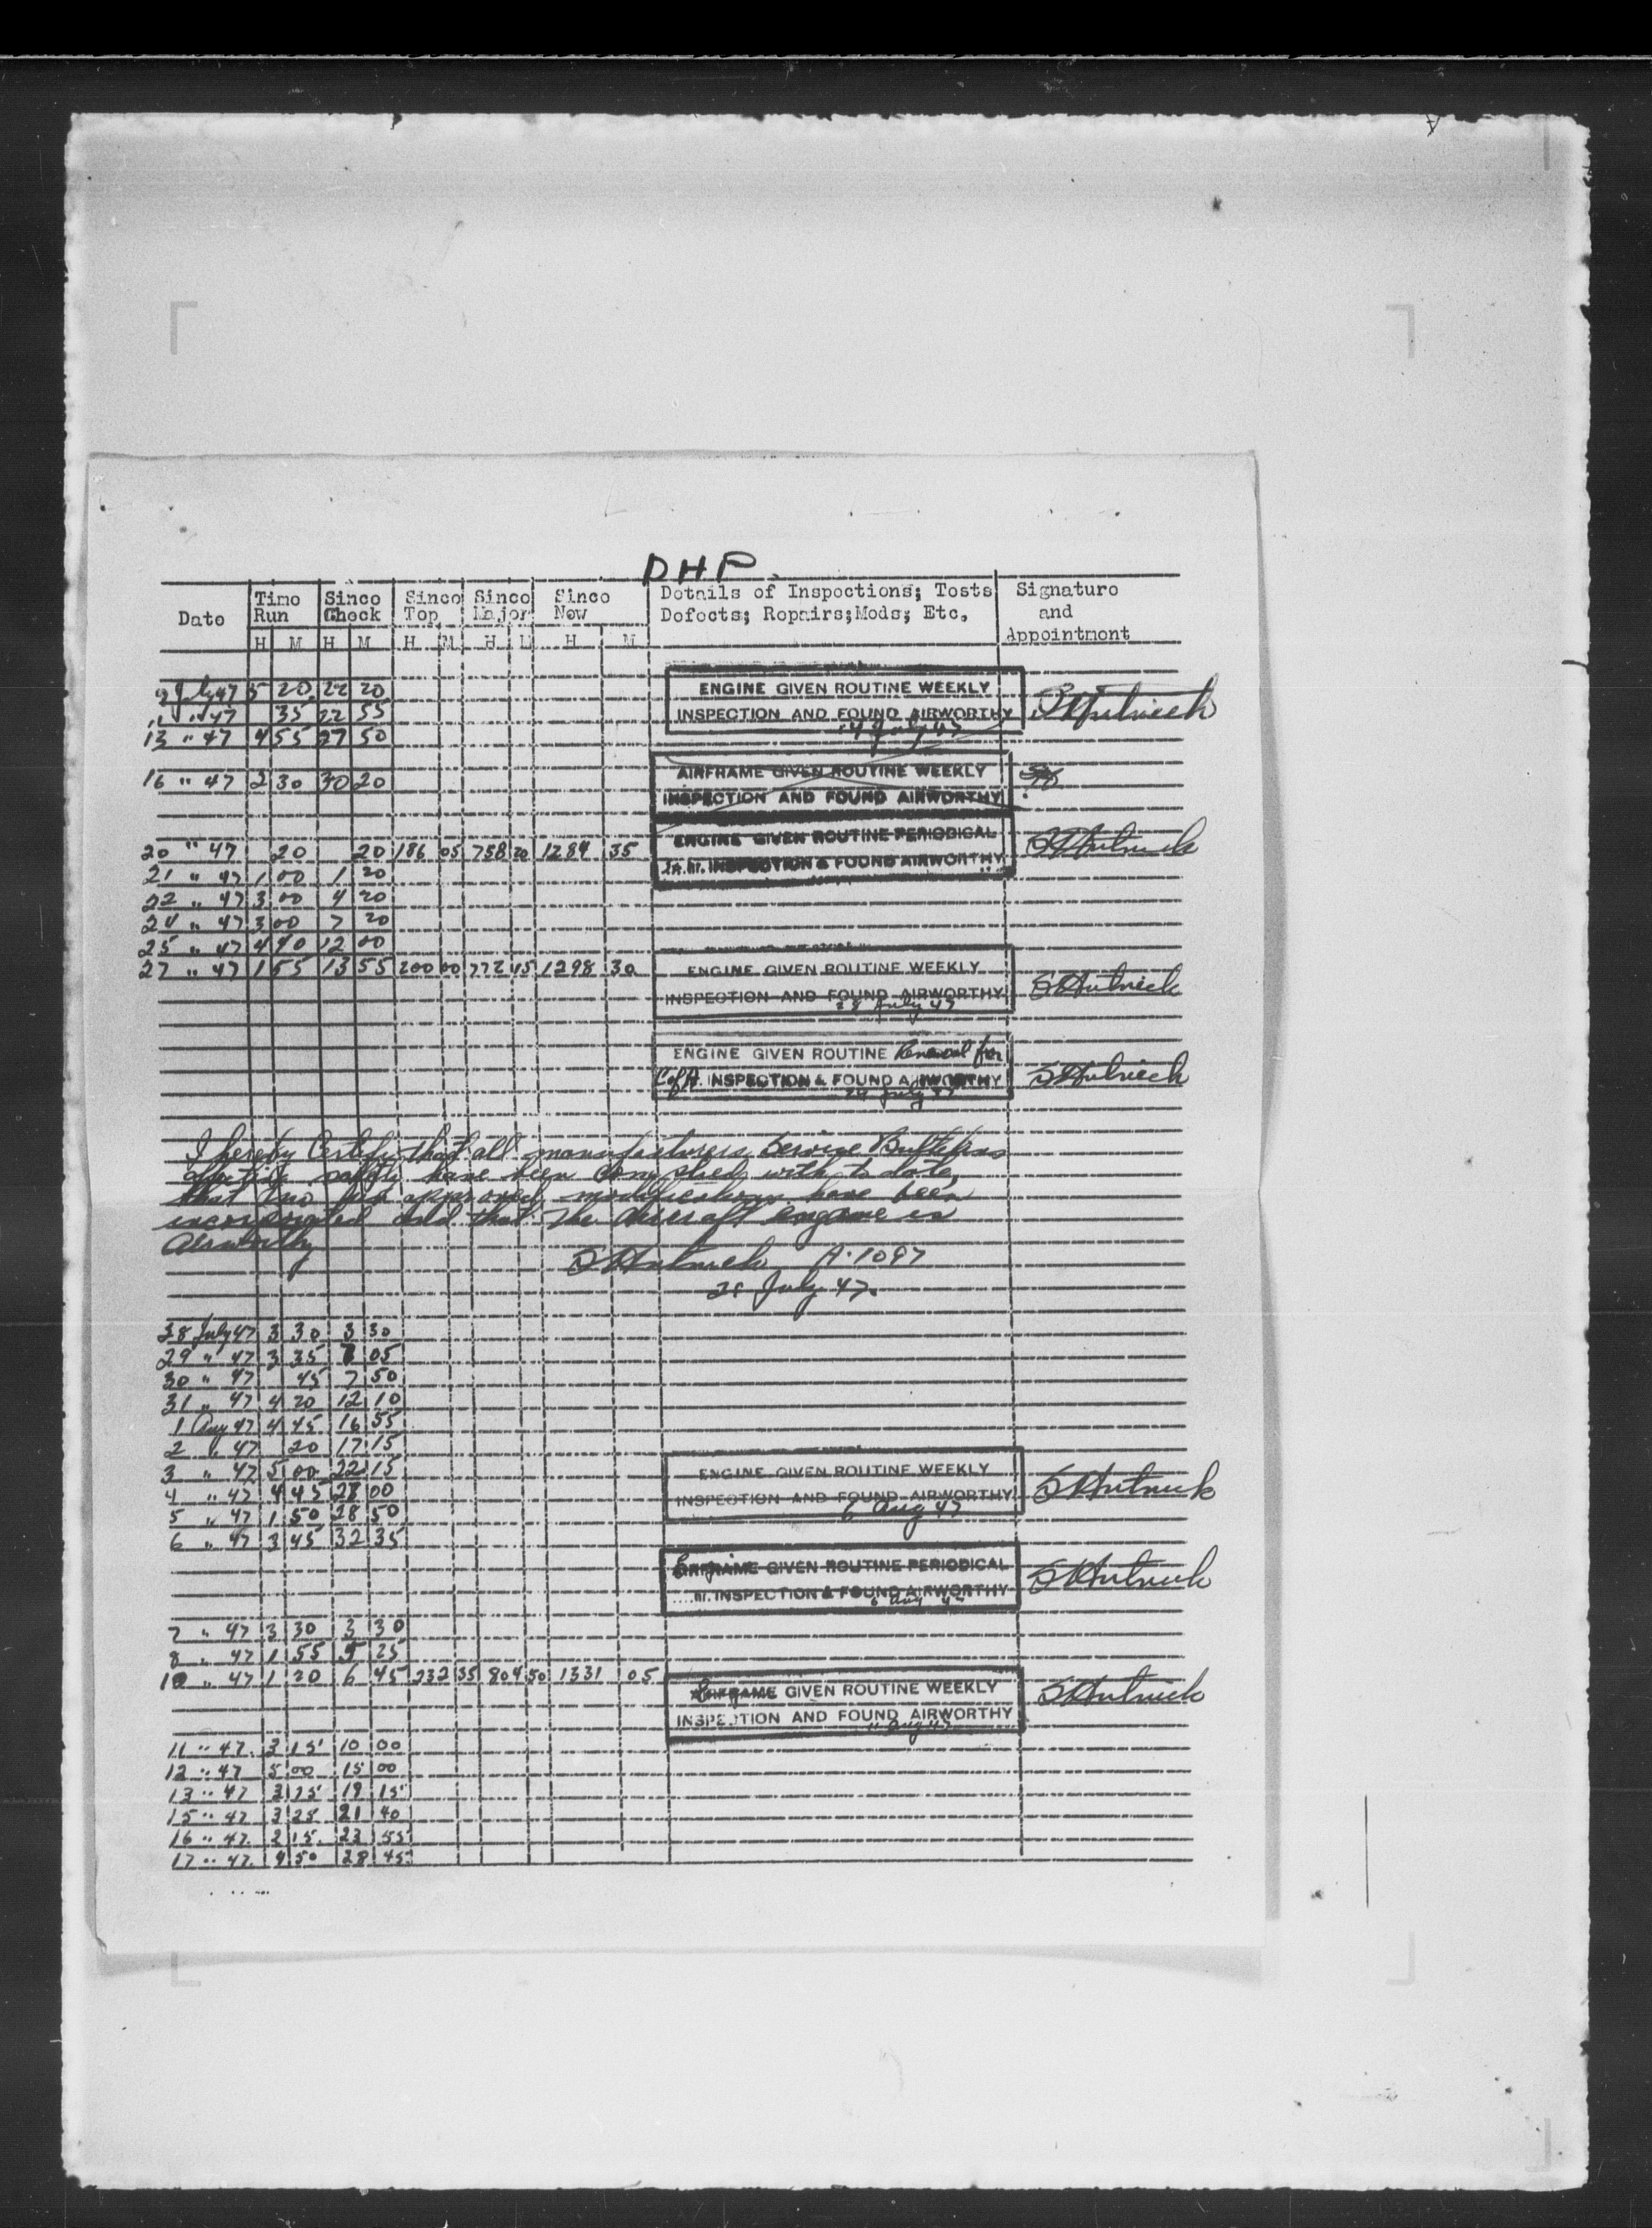 DHP.
Date Time Run Since Check Since Top Since Major Since New Details of Inspections; Tests Defects; Repairs;Mods; Etc. Signature and Appointment
H M H M H M H M H M
9 July 47 5 20 22 20
ENGINE GIVEN ROUTINE WEEKLY
11 " 47 35 22 55
INSPECTION AND FOUND AIRWORTHY
13 " 47 4 55 27 50
14 July 47
16 " 47 2 30 30 20
AIRFRAME GIVEN ROUTINE WEEKLY
INSPECTION AND FOUND AIRWORTHY
ENGINE GIVEN ROUTINE PERIODICAL
20 " 47 20 20 186 05 758 20 1284 35
hr. INSPECTION & FOUND AIRWORTHY
21 " 47 1 00 1 20
22 " 47 3 00 4 20
24 " 47 3 00 7 20
25 " 47 4 40 12 00
27 " 47 1 55 13 55 200 00 772 45 1298 30
ENGINE GIVEN ROUTINE WEEKLY
INSPECTION AND FOUND AIRWORTHY
28 July 47
ENGINE GIVEN ROUTINE Renewal for
C of A. INSPECTION & FOUND AIRWORTHY
July 47
I hereby Certify that all manufacturers Service Bulletins
affecting safety have been complied with to date,
that approved modifications have been
incorporated and that the aircraft engine is
airworthy
A.1097
28 July 47.
28 July 47 3 30 3 30
29 " 47 3 35 7 05
30 " 47 45 7 50
31 " 47 4 20 12 10
1 Aug 47 4 45 16 55
2 " 47 20 17 15
3 " 47 5 00 22 15
ENGINE GIVEN ROUTINE WEEKLY
4 " 47 4 45 28 00
INSPECTION AND FOUND AIRWORTHY
5 " 47 1 50 28 50
6 Aug 47
6 " 47 3 45 32 35
Engine GIVEN ROUTINE PERIODICAL
....hr. INSPECTION & FOUND AIRWORTHY
6 Aug 47
7 " 47 3 30 3 30
8 " 47 1 55 5 25
10 " 47 1 20 6 45 232 35 804 50 1331 05
Engine GIVEN ROUTINE WEEKLY
INSPECTION AND FOUND AIRWORTHY
11 Aug 47
11 " 47. 3 15 10 00
12 " 47 5 00 15 00
13 " 47 19 15
15 " 47 3 25 21 40
16 " 47. 2 15. 23 55
17 " 47. 4 50 28 45